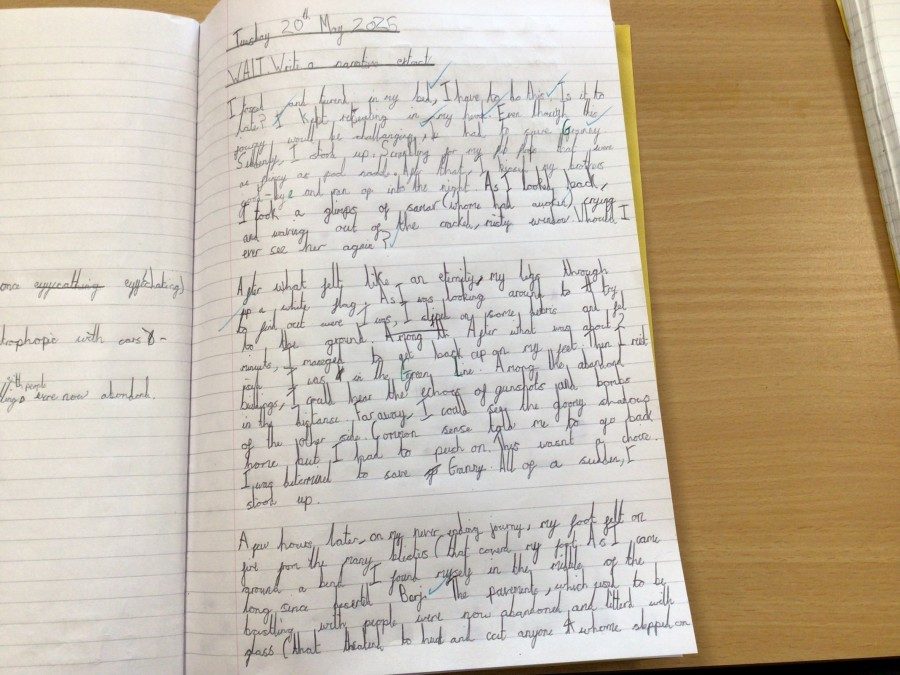 Tuesday 20th May 2025
WALT Write a narrative extract
I tossed and turend in my bed, I have to do this. Is it to
late? I kept repeating in my head. Even though this
journey would be challanging, I had to save Granny.
Suddenly, I stood up. Scrambling for my flip flops that were
as flimsy as pool noodles. After that, I kissed my brothers
good-bye and ran op into the night. As I looked back,
I took a glimps of samar (whome had awoken) crying
and waving out of the cracked, rusty window. Would I
ever see her again?
After what felt like an eternity, my legs through
up a white flag. As I was looking around to try
to find out were I was, I sliped on some debris and fell
to the ground. Among th After what was about 2
minuets, I managed to get back up on my feet. Then I
I was in the Green Line. Among the abandond
buildings, I coull hear the echoes of gunshots and bombs
in the distance. Far away, I could see the gloomy shadows
of the other side. Common sense told me to go back
home but I had to push on. This wasn't a choice.
I was determind to save Granny. All of a sudden, I
stood up.
A few hours later, on my never ending journey, my foot felt on
fire from the many blisters (that coverd my foot. As I came
around a bend I found myself in the middle of the
long since deserted Borj. The pavements, which used to be
bustling with people were now abandoned and litterd with
glass (that theatend to hurt and cut anyone whome stepped on
once eyycathing eyybchating)
drophopic with cars -
with people
lings were now abandond.